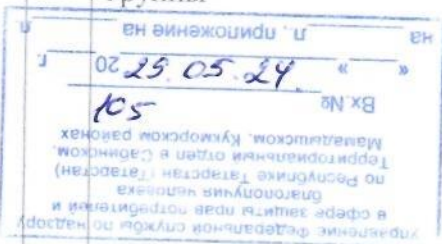 Управление Федеральной службы по надзору
в сфере защиты прав потребителей и
благополучия человека
по Республике Татарстан (Татарстан)
Территориальный отдел в Сабинском,
Мамадышском, Кукморском районах
Вх.№ 105
« » 20 г. 29.05.24
на л. приложение на л